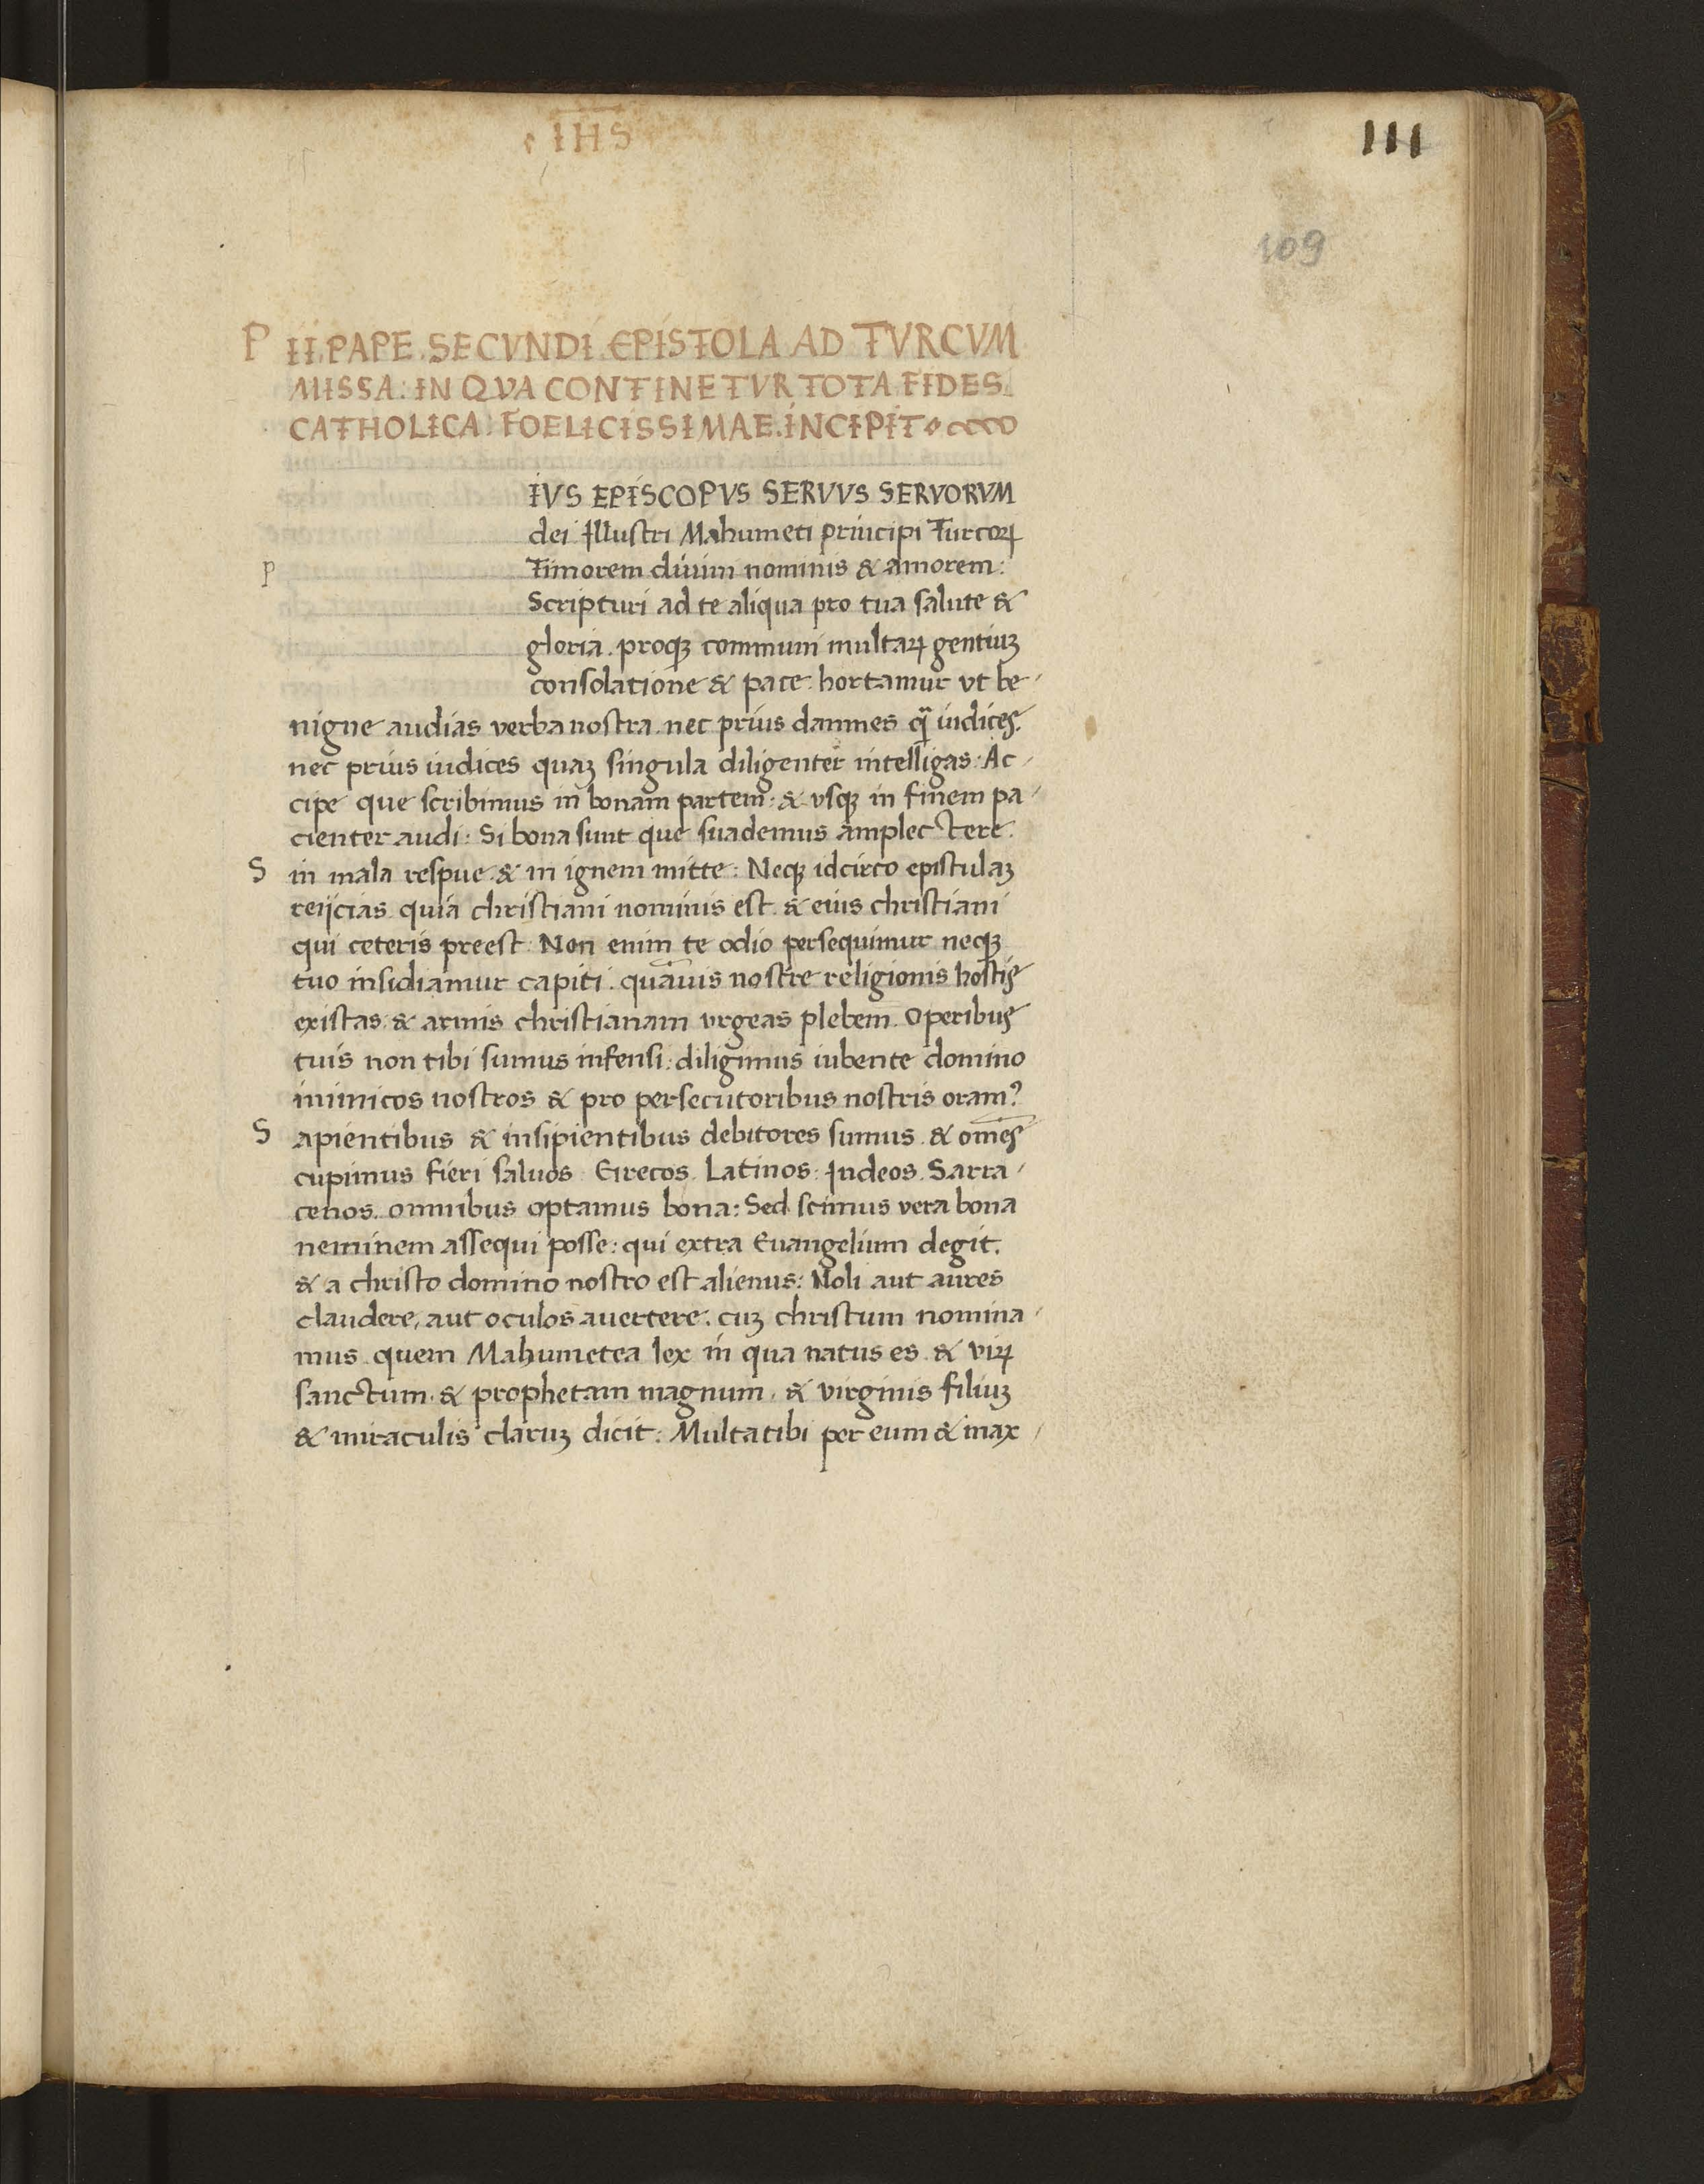 IHS
111
109
P II. PAPE. SECVNDI. EPISTOLA AD TVRCVM
MISSA: IN QVA CONTINETVR TOTA FIDES
CATHOLICA: FOELICISSIMAE. INCIPIT
IVS EPISCOPVS SERVVS SERVORVM
dei Illustri Mahumeti principi Turcoꝝ
p Timorem diuini nominis & amorem:
Scripturi ad te aliqua pro tua salute &
gloria. proqꝫ communi multaꝝ gentiuꝫ
consolatione & pace. hortamur vt be-
nigne audias verba nostra. nec prius damnes q̃ iudices.
nec prius iudices quaꝫ singula diligenter intelligas: Ac-
cipe que scribimus in bonam partem: & vsqꝫ in finem pa-
cienter audi: Si bona sunt que suademus amplectere.
S in mala respue & in ignem mitte: Neqꝫ idcirco epistulaꝫ
reijcias quia christiani nominis est & eius christiani
qui ceteris preest: Non enim te odio persequimur neqꝫ
tuo insidiamur capiti. quãuis nostre religionis hostis
existas & armis christianam vrgeas plebem. Operibus
tuis non tibi sumus infensi: diligimus iubente domino
inimicos nostros & pro persecutoribus nostris oram?
S apientibus & insipientibus debitores sumus. & om̃es
cupimus fieri saluos. Grecos. Latinos: Iudeos. Sarra-
cenos. omnibus optamus bona: Sed scimus vera bona
neminem assequi posse: qui extra Euangelium degit.
& a christo domino nostro est alienus: Noli aut aures
claudere, aut oculos auertere. cuꝫ christum nomina-
mus. quem Mahumetea lex in qua natus es. & viꝝ
sanctum. & prophetam magnum. & virginis filiuꝫ
& miraculis claruꝫ dicit: Multa tibi per eum & max-